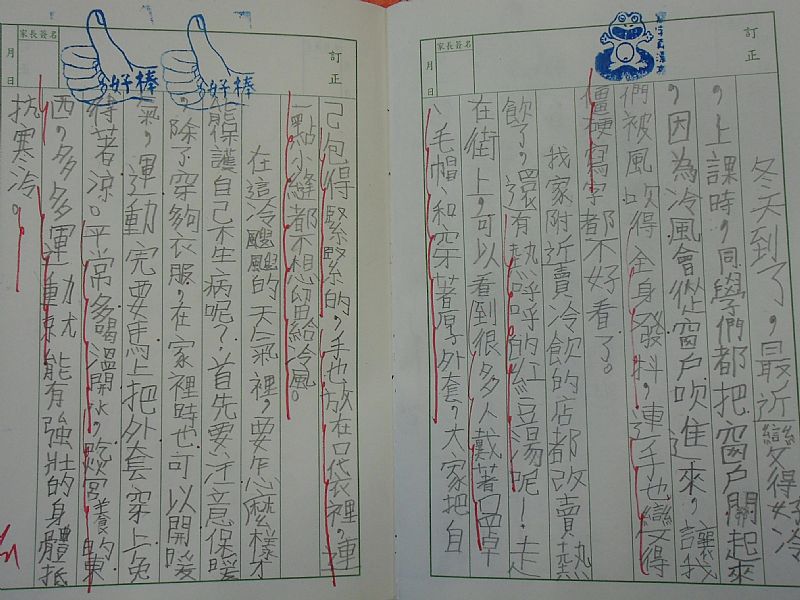 家長簽名
月 日
訂正
冬天到了,最近變得好冷
,上課時,同學們都把窗戶關起來
,因為冷風會從窗戶吹進來,讓我
們被風吹得全身發抖,連手也變得
僵硬寫字都不好看了。
我家附近賣冷飲的店都改賣熱
飲了,還有熱呼呼的紅豆湯呢!走
在街上,可以看到很多人戴著口罩
、毛帽、和穿著厚外套,大家把自
家長簽名
月 日
訂正
好棒
好棒
己包得緊緊的,手也放在口袋裡,連
一點小縫都不想留給冷風。
在這冷颼颼的天氣裡,要怎麼樣才
能保護自己不生病呢?首先要注意保暖
,除了穿夠衣服,在家裡時也可以開暖
氣,運動完要馬上把外套穿上免
得著涼。平常多喝溫開水,吃營養的東
西,多多運動就能有強壯的身體抵
抗寒冷。